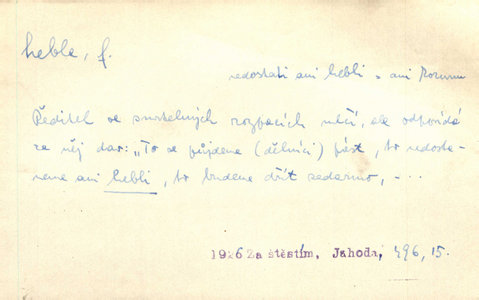 heble, f.
nedostati ani hebli = ani korunu
Ředitel ve smrtelných rozpacích mlčí, ale odpovídá
za něj dav: „To se půjdeme (dělníci) pást, to nedosta-
neme ani hebli, to budeme dřít zadarmo, - . .
1926 Za štěstím, Jahoda, 496, 15.